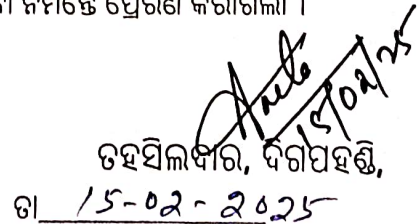 ନିମନ୍ତେ ପ୍ରେରଣ କରାଗଲା ।
15/02/25
ତହସିଲଦାର, ଦିଗପହଣ୍ଡି,
ତା 15-02-2025